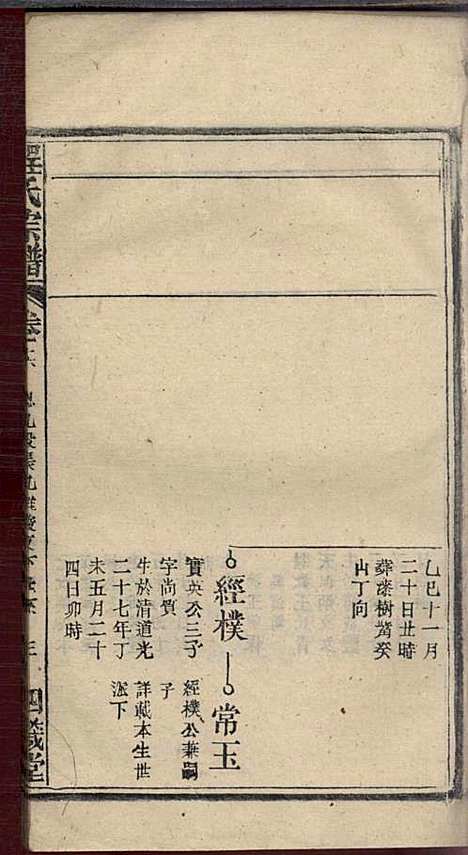 乙巳十一月
二十日丑時
葬榛樹嘴癸
山丁向
經樸
常玉
寶英公三子
字尚質
生於清道光
二十七年丁
未五月二十
四日卯時
經樸公兼嗣
子
詳載本生世
派下
氏宗譜
卷之六
四箴堂